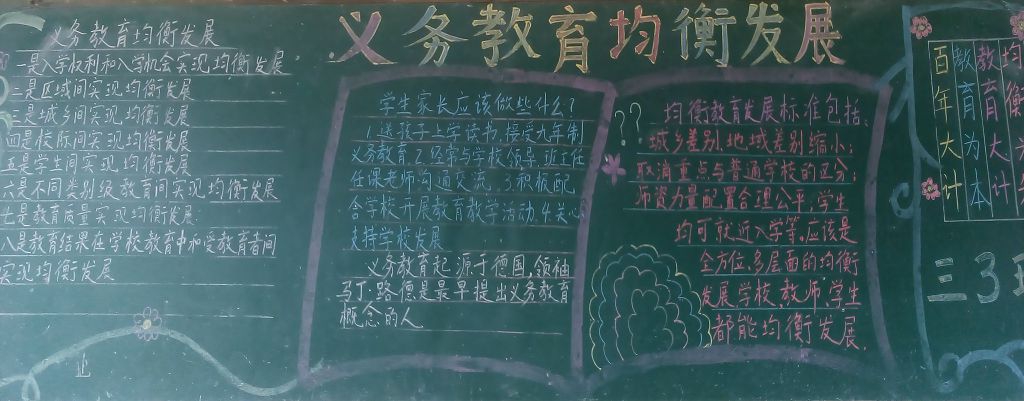 义务教育均衡发展
义务教育均衡发展
一是入学权利和入学机会实现均衡发展
二是区域间实现均衡发展
三是城乡间实现均衡发展
四是校际间实现均衡发展
五是学生间实现均衡发展
六是不同类别级教育间实现均衡发展
七是教育质量实现均衡发展.
八是教育结果在学校教育中和受教育者间
实现均衡发展
学生家长应该做些什么?
1.送孩子上学读书,接受九年制
义务教育.2.经常与学校领导班主任
任课老师沟通交流.3.积极配
合学校开展教育教学活动.4.关心
支持学校发展
义务教育起源于德国,领袖
马丁.路德是最早提出义务教育
概念的人
??
均衡教育发展标准包括:
城乡差别,地域差别缩小;
取消重点与普通学校的区分;
师资力量配置合理公平,学生
均可就近入学等.应该是
全方位.多层面的均衡
发展学校.教师.学生
都能均衡发展.
教育大计
教育为本
百年大计
三3